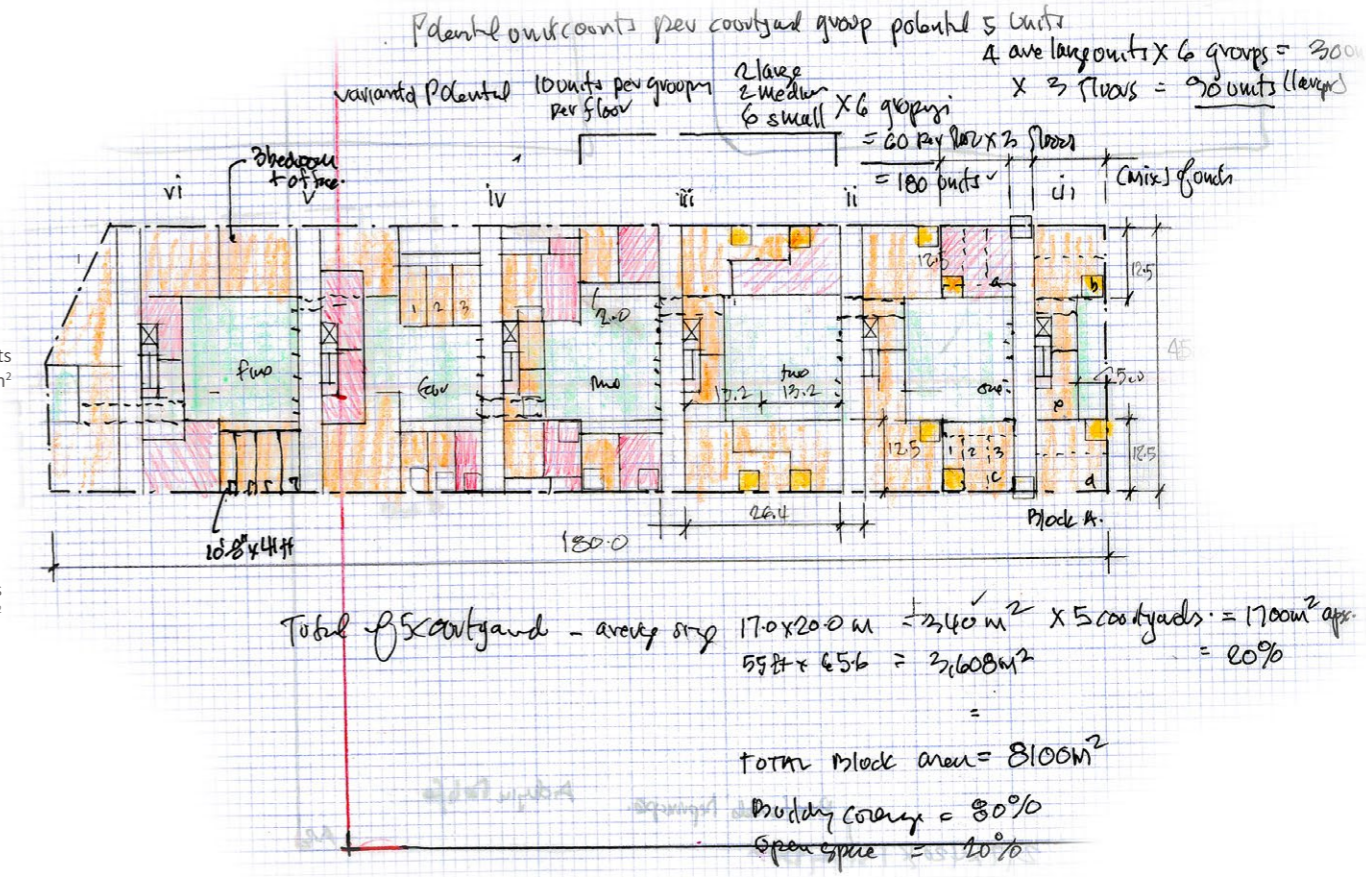 Potential unit counts per courtyard group potential 5 units
4 are large units x 6 groups = 300
x 3 floors = 90 units (large)
variant Potential 10 units per group per floor
2 large
2 medium
6 small x 6 groups
= 60 per floor x 3 floors
= 180 units
(mix) of each
3 bedroom
+ office.
vi v iv iii ii i
12.5 12.5
1 2 3 a b
2.0
45
ts
m²
two four two two one
13.2 13.2 5.0
e
12.5 1 2 3 12.5
c d
26.4
Block A.
10'8" x 41ft
180.0
Total of 5 courtyard - average size 17.0x20.0 m = 340 m² x 5 courtyards = 1700m² apx.
55ft x 65.6 = 3,608m² = 20%
=
TOTAL Block area = 8100m²
Building coverage = 80%
Open space = 20%